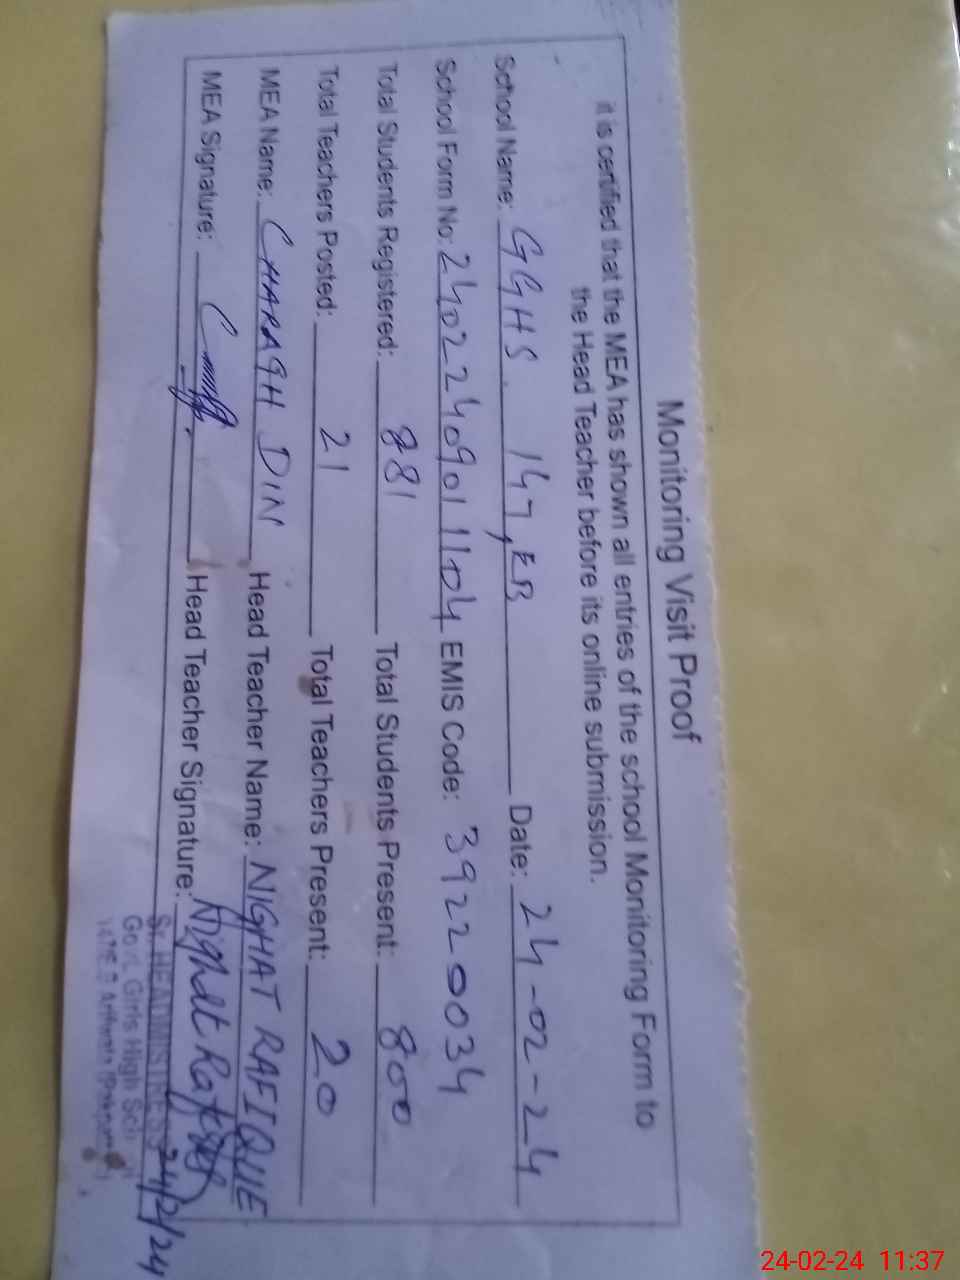 Monitoring Visit Proof
it is certified that the MEA has shown all entries of the school Monitoring Form to
the Head Teacher before its online submission.
School Name: GGHS. 147, EB Date: 24-02-24
School Form No: 24022409011104 EMIS Code: 39220034
Total Students Registered: 881 Total Students Present: 800
Total Teachers Posted: 21 Total Teachers Present: 20
MEA Name: CHARAGH DIN Head Teacher Name: NIGHAT RAFIQUE
MEA Signature: Head Teacher Signature: Nighat Rafique
Sr. HEADMISTRESS 24/2/24
Govt. Girls High Sch
24-02-24 11:37